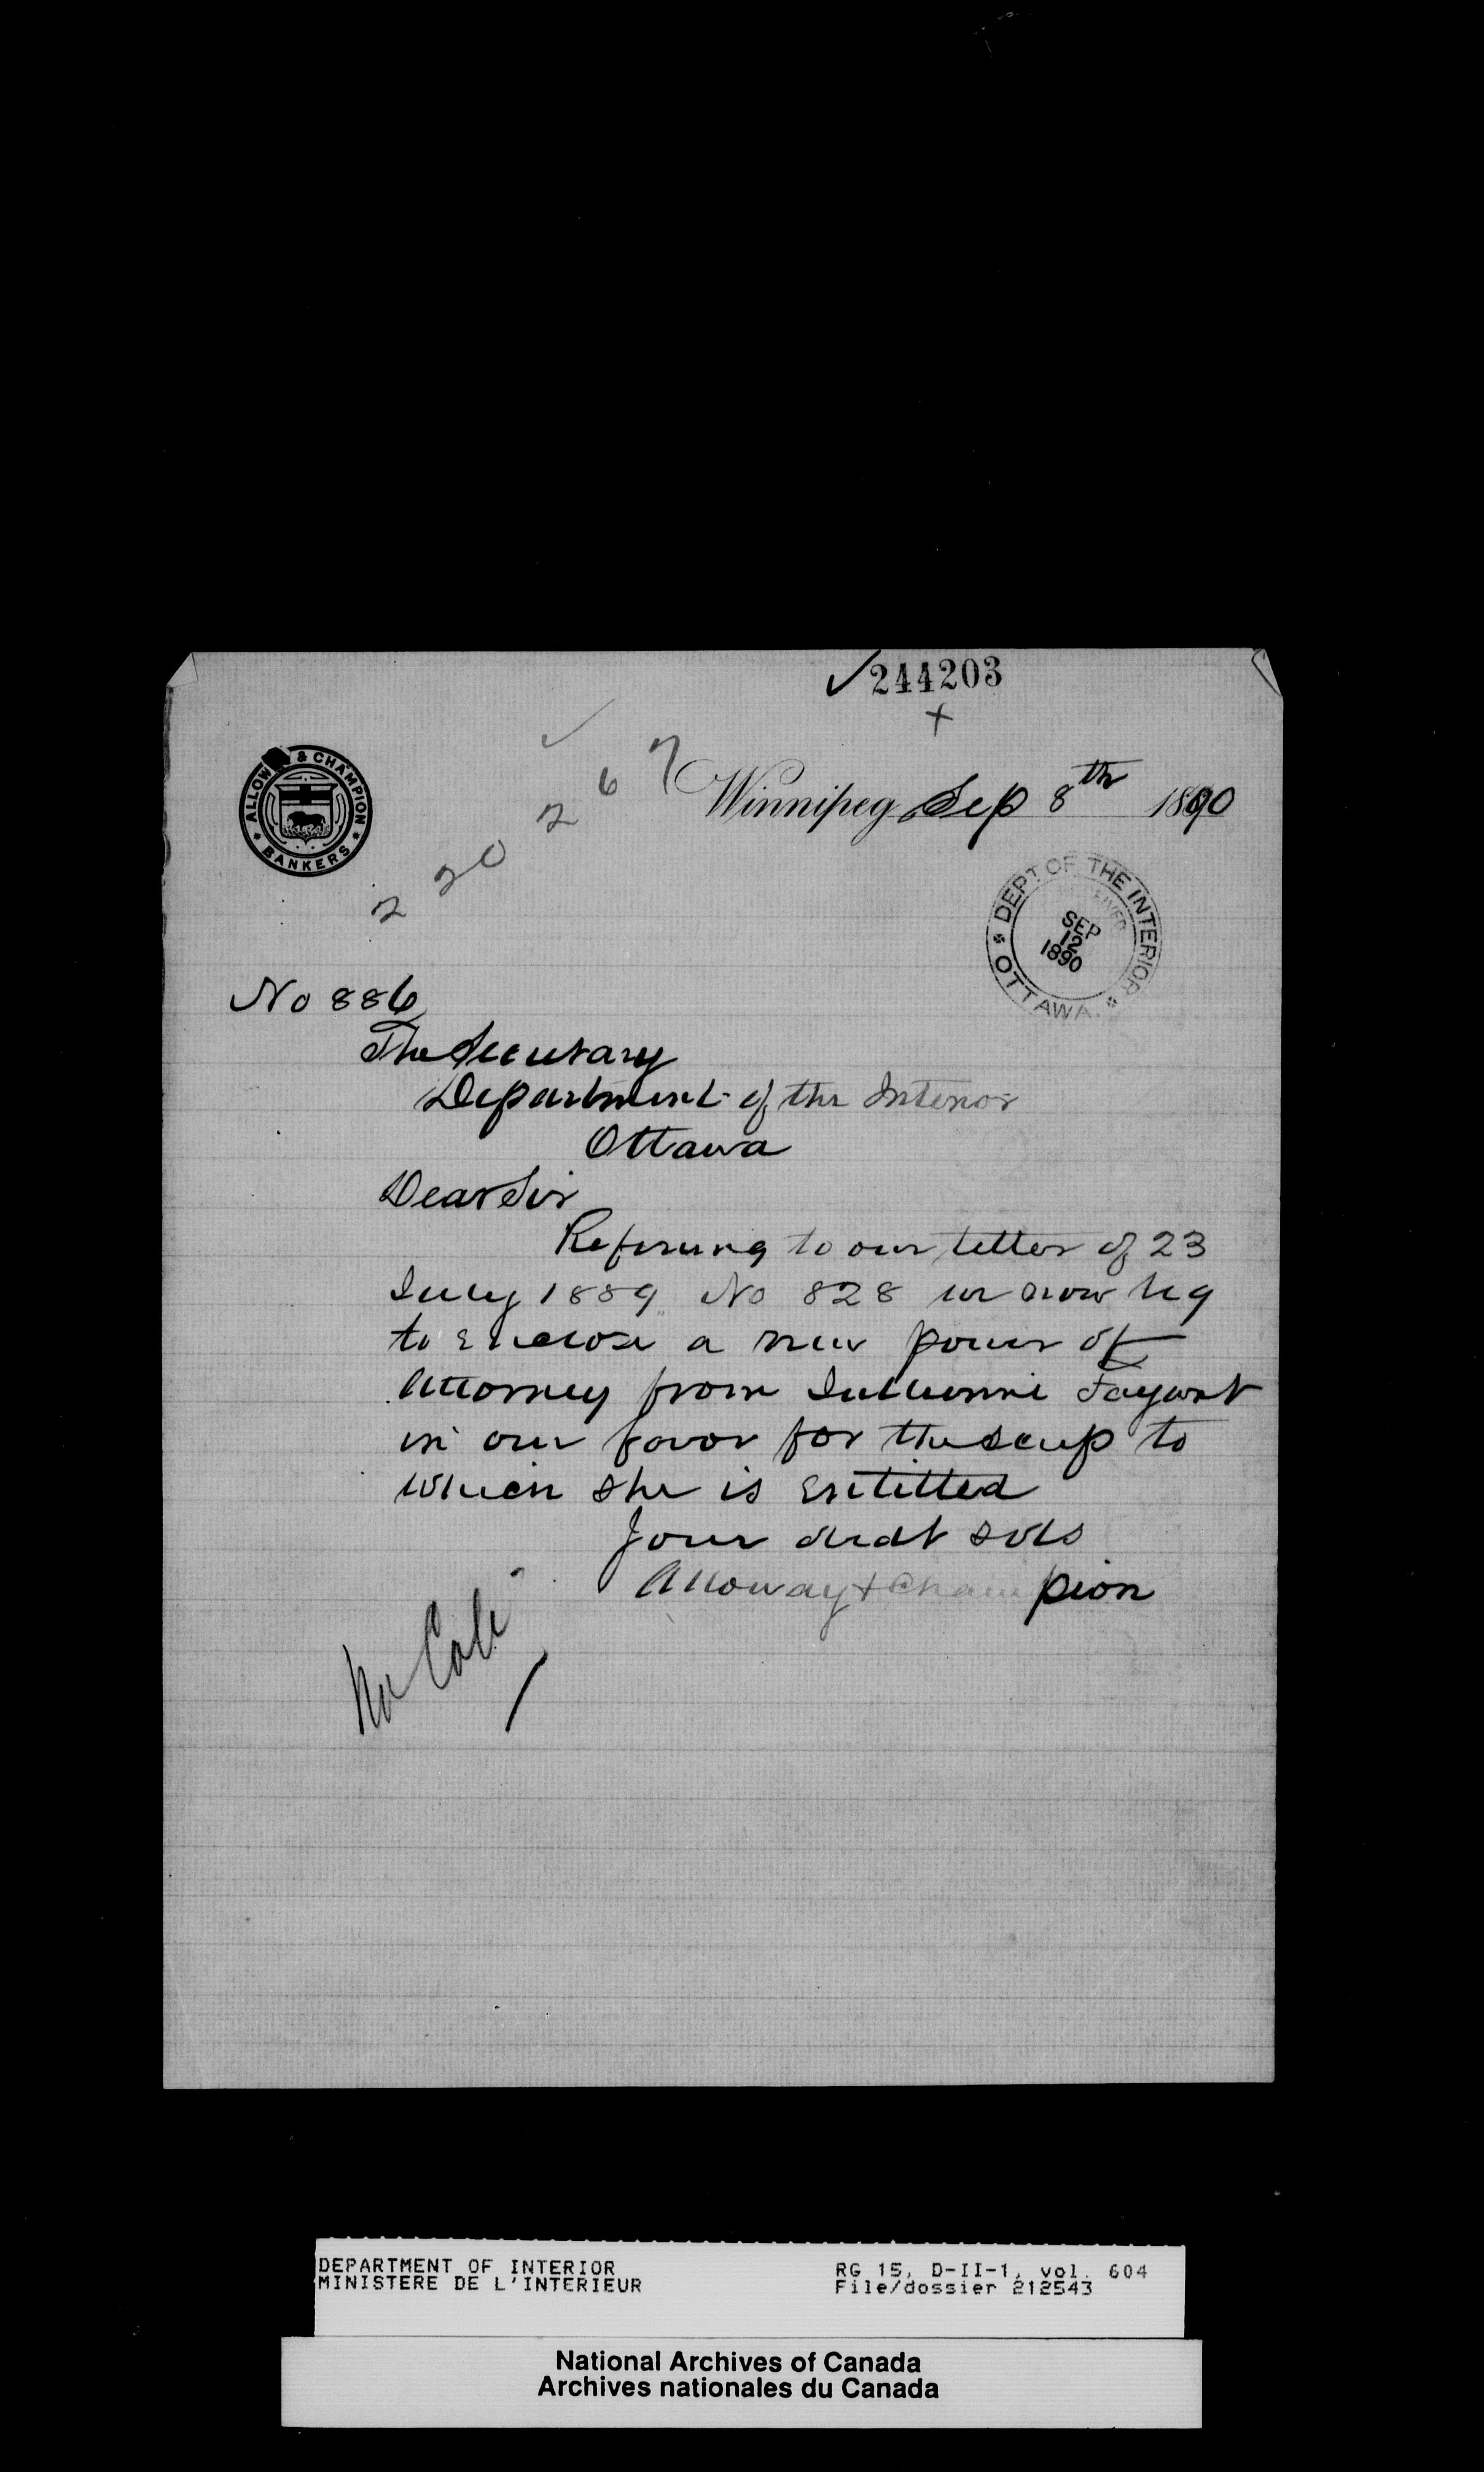 ✓244203
+
ALLOWAY & CHAMPION
* BANKERS *
220267
Winnipeg Sep 8th 1890
DEPT OF THE INTERIOR
SEP
12
1890
* OTTAWA. *
No 886
The Secretary
Department of the Interior
Ottawa
Dear Sir
Referring to our letter of 23
July 1889 No 828 we now beg
to enclose a new power of
Attorney from Fayant
in our favor for the scrip to
which she is entitled
Your
Alloway & Champion
DEPARTMENT OF INTERIOR
MINISTERE DE L'INTERIEUR
RG 15, D-II-1, vol. 604
File/dossier 212543
National Archives of Canada
Archives nationales du Canada